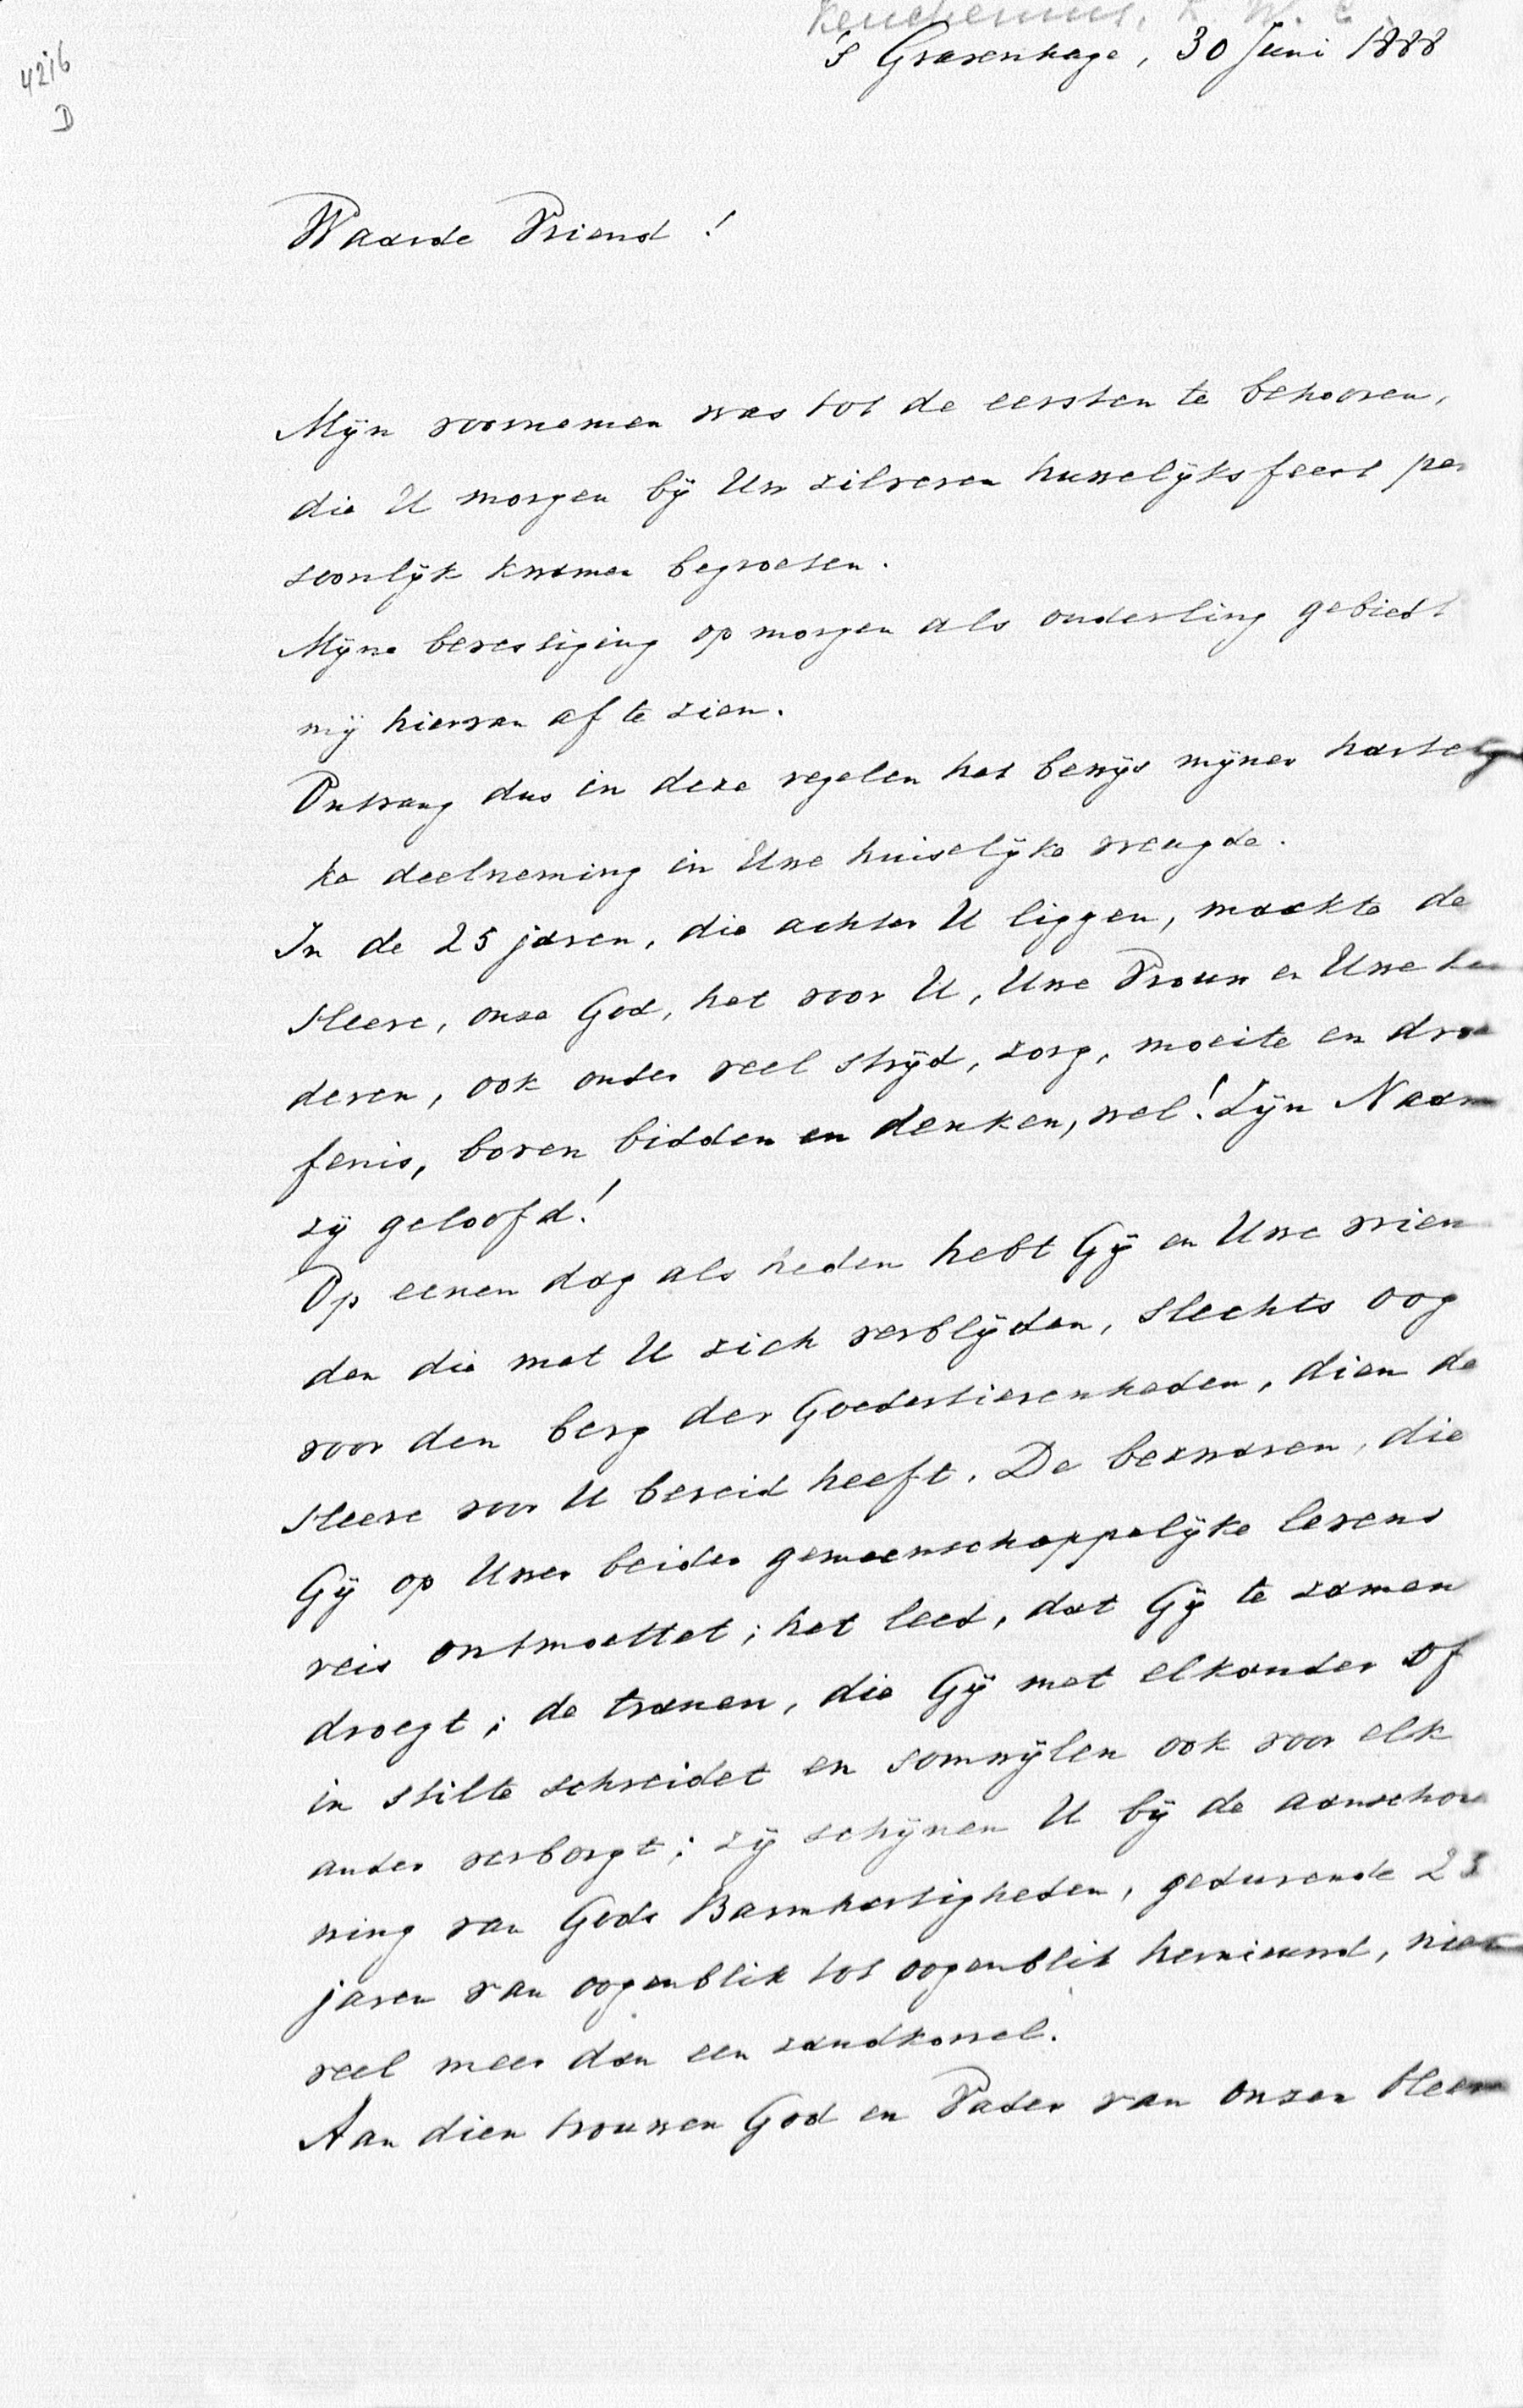 Keuchenius, L. W. C.
's Gravenhage, 30 Juni 1888
4216
D
Waarde Vriend!
Mijn voornemen was tot de eersten te behooren,
die U morgen bij Uw zilveren huwelijksfeest per
soonlijk kwamen begroeten.
Mijne bevestiging op morgen als ouderling gebiedt
mij hiervan af te zien.
Ontvang dus in deze regelen het bewijs mijner hartelij
ke deelneming in Uwe huiselijke vreugde.
In de 25 jaren, die achter U liggen, maakte de
Heere, onze God, het voor U, Uwe Vrouw en Uwe
deren, ook onder veel strijd, zorg, moeite en droe
fenis, boven bidden en denken, wel! Zijn Naam
zij geloofd!
Op eenen dag als heden hebt Gij en Uwe vrien
den die met U zich verblijden, slechts oog
voor den berg der Goedertierenheden, dien de
Heere voor U bereid heeft. De bezwaren, die
Gij op Uwer beider gemeenschappelijke levens
reis ontmoettet; het leed, dat Gij te zamen
droegt; de tranen, die Gij met elkander of
in stilte schreidet en somwijlen ook voor elk
ander verborgt; zij schijnen U bij de aanschou
wing van Gods Barmhartigheden, gedurende 25
jaren van oogenblik tot oogenblik hernieuwd, niet
veel meer dan een zandkorrel.
Aan dien trouwen God en Vader van onzen Heere